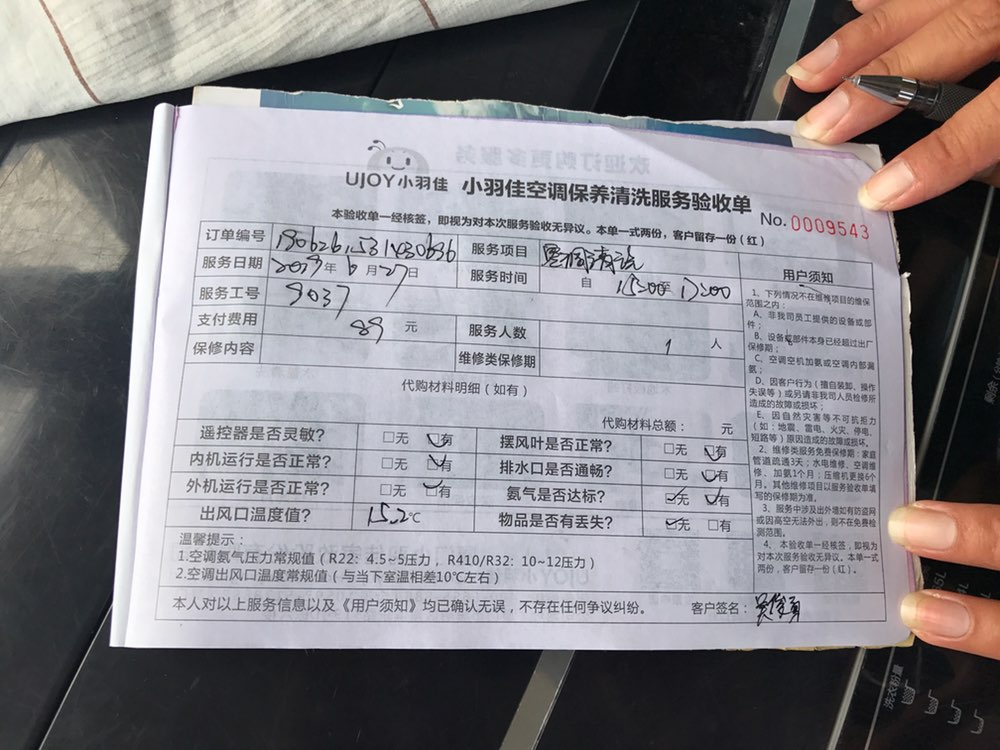 UJOY小羽佳 小羽佳空调保养清洗服务验收单
No. 0009543
本验收单一经核签，即视为对本次服务验收无异议。本单一式两份，客户留存一份（红）
订单编号 服务项目
服务日期 2019年6月27日 服务时间 自 15:00 17:00
服务工号 9037
支付费用 89 元 服务人数 1 人
保修内容 维修类保修期
代购材料明细（如有）
代购材料总额： 元
遥控器是否灵敏？ □无 ☑有 摆风叶是否正常？ □无 ☑有
内机运行是否正常？ □无 ☑有 排水口是否通畅？ □无 ☑有
外机运行是否正常？ □无 ☑有 氨气是否达标？ ☑无 ☑有
出风口温度值？ 15.2℃ 物品是否有丢失？ ☑无 □有
温馨提示：
1.空调氨气压力常规值（R22：4.5~5压力，R410/R32：10~12压力）
2.空调出风口温度常规值（与当下室温相差10℃左右）
本人对以上服务信息以及《用户须知》均已确认无误，不存在任何争议纠纷。 客户签名：
用户须知
1、下列情况不在维修项目的维保
范围之内：
A、非我司员工提供的设备或部
件；
B、设备或部件本身已经超过出厂
保修期；
C、空调空机加氨或空调内部漏
氨；
D、因客户行为（擅自装卸、操作
失误等）或另请非我司人员检修所
造成的故障或损坏；
E、因自然灾害等不可抗拒力
（如：地震、雷电、火灾、停电、
短路等）原因造成的故障或损坏。
2、维修类服务免费保修期：家庭
管道疏通3天；水电维修、空调维
修、加氨1个月；压缩机更换6个
月。其他维修项目以服务验收单填
写的保修期为准。
3、服务中涉及出外墙如有防盗网
或因高空无法外出，则不在免费检
测范围。
4、本验收单一经核签，即视为
对本次服务验收无异议。本单一式
两份，客户留存一份（红）。
洗衣粉量